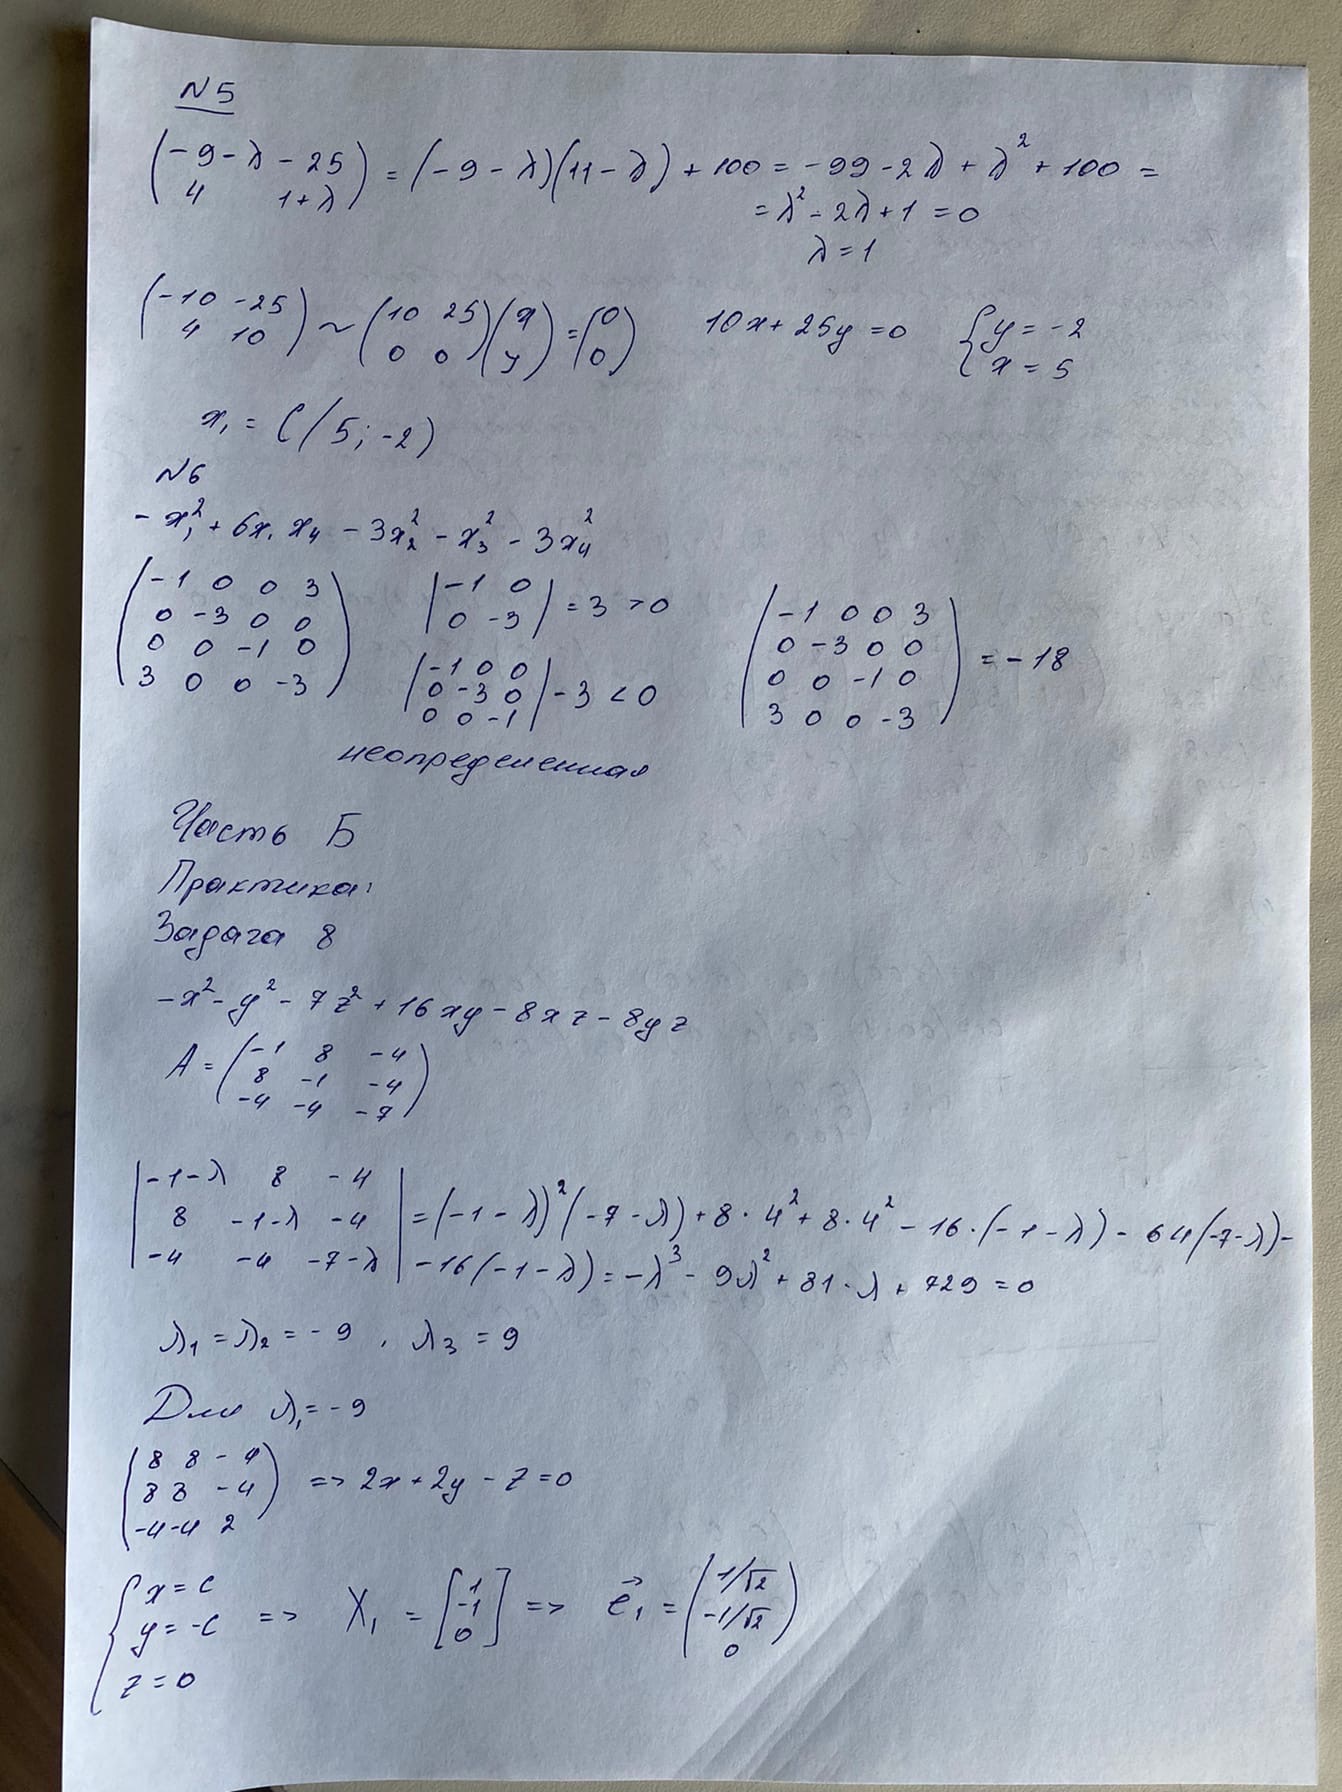 N5
(-9-λ -25
4 1+λ) = (-9-λ)(11-λ) + 100 = -99 - 2λ + λ² + 100 =
= λ² - 2λ + 1 = 0
λ = 1
(-10 -25
4 10) ~ (10 25
0 0)(x
y) = (0
0) 10x + 25y = 0 {y = -2
x = 5
x₁ = C(5; -2)
N6
-x₁² + 6x₁x₄ - 3x₂² - x₃² - 3x₄²
(-1 0 0 3
0 -3 0 0
0 0 -1 0
3 0 0 -3)
|-1 0
0 -3| = 3 > 0
|-1 0 0
0 -3 0
0 0 -1| - 3 < 0
(-1 0 0 3
0 -3 0 0
0 0 -1 0
3 0 0 -3) = -18
неопределенная
Часть Б
Практика:
Задача 8
-x² - y² - 7z² + 16xy - 8xz - 8yz
A = (-1 8 -4
8 -1 -4
-4 -4 -7)
|-1-λ 8 -4
8 -1-λ -4
-4 -4 -7-λ| = (-1-λ)²(-7-λ) + 8·4² + 8·4² - 16·(-1-λ) - 64(-7-λ) -
-16(-1-λ) = -λ³ - 9λ² + 81·λ + 729 = 0
λ₁ = λ₂ = -9, λ₃ = 9
Для λ₁ = -9
(8 8 -4
8 8 -4
-4 -4 2) => 2x + 2y - z = 0
{x = c
y = -c
z = 0 => X₁ = [1
-1
0] => e⃗₁ = (1/√2
-1/√2
0)